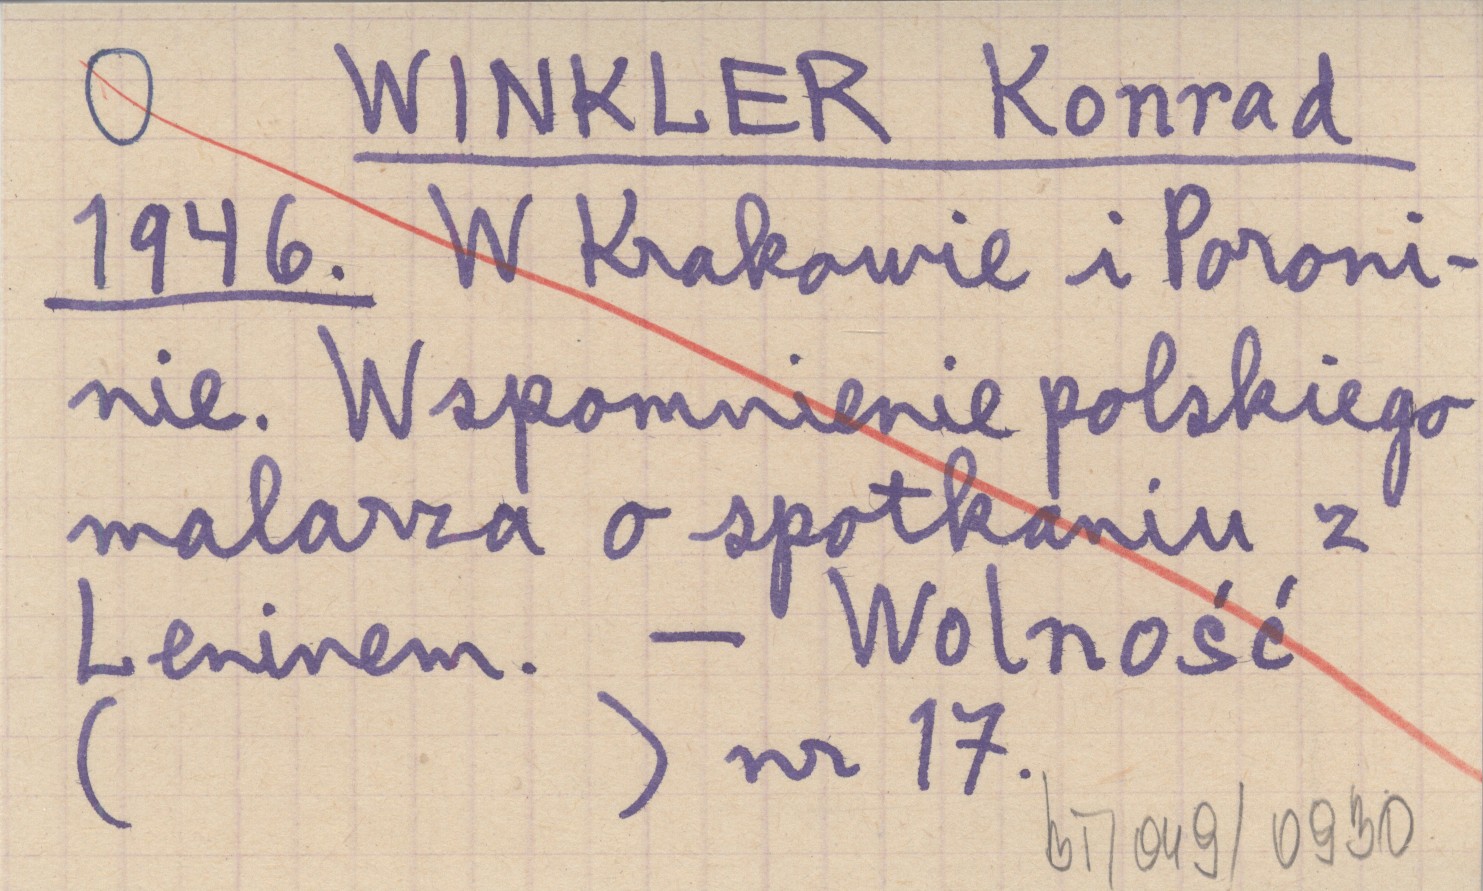 O WINKLER Konrad
1946. W Krakowie i Poroni-
nie. Wspomnienie polskiego
malarza o spotkaniu z
Leninem. — Wolność
( ) nr 17.
049/0930